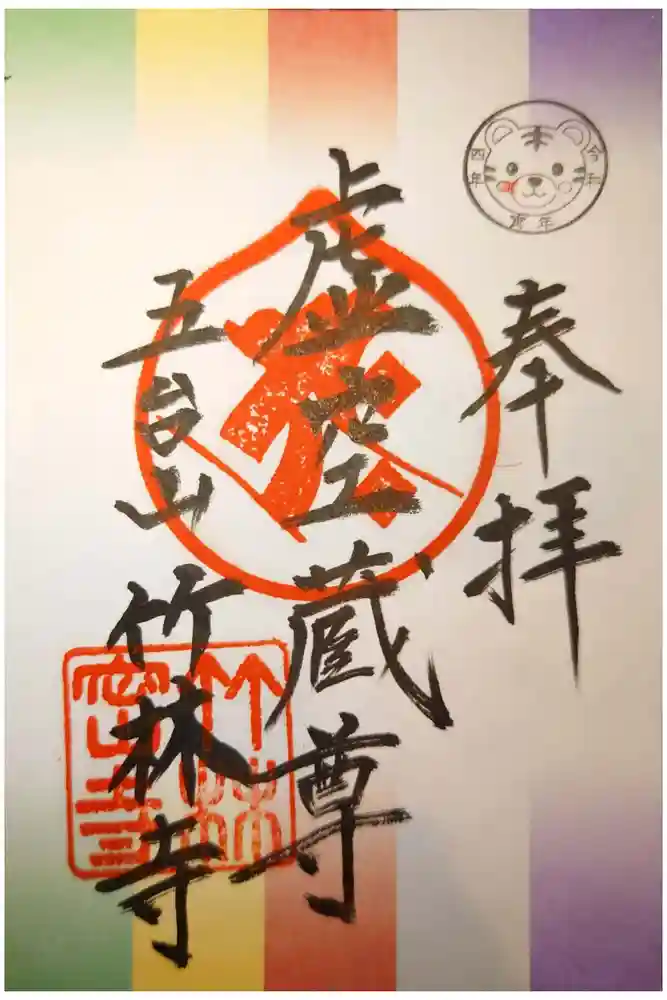 奉拝
虚空蔵尊
五台山
竹林寺
令和
四年
寅年